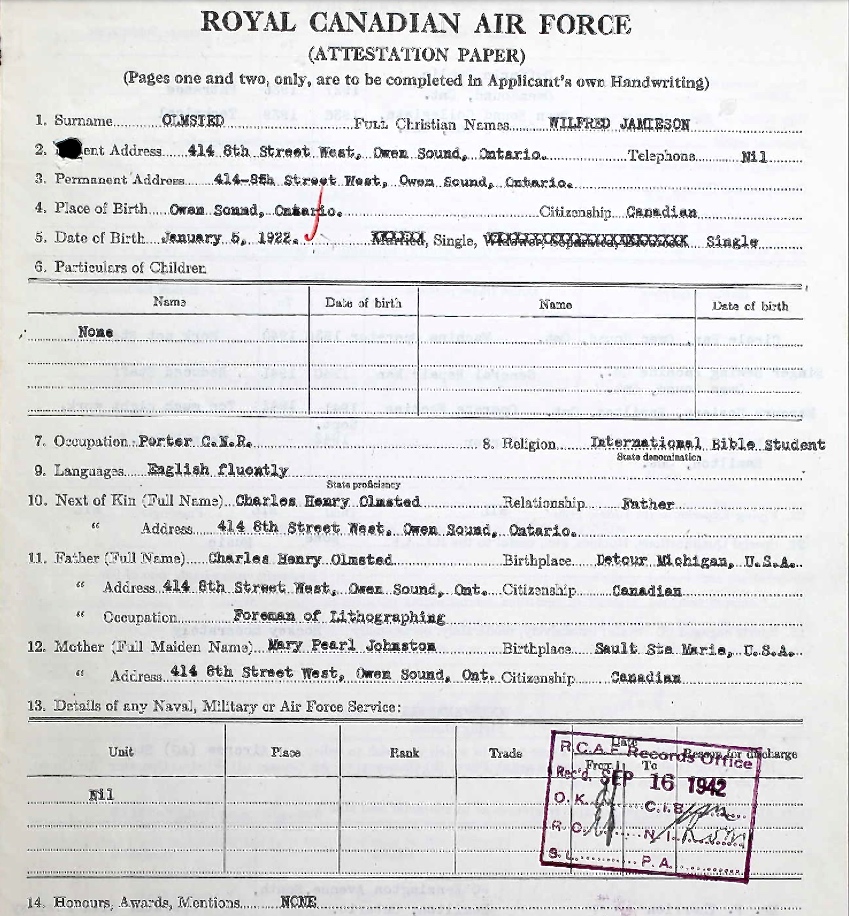 ROYAL CANADIAN AIR FORCE
(ATTESTATION PAPER)
(Pages one and two, only, are to be completed in Applicant's own Handwriting)
1. Surname OLMSTED Full Christian Names WILFRED JAMIESON
2. ent Address 414 8th Street West, Owen Sound, Ontario. Telephone Nil
3. Permanent Address 414-8th Street West, Owen Sound, Ontario.
4. Place of Birth Owen Sound, Ontario. Citizenship Canadian
5. Date of Birth January 5, 1922. Married, Single, Widower, Separated, Divorced Single
6. Particulars of Children
Name Date of birth Name Date of birth
None
7. Occupation Porter C.N.R. 8. Religion International Bible Student
State denomination
9. Languages English fluently
State proficiency
10. Next of Kin (Full Name) Charles Henry Olmsted Relationship Father
" Address 414 8th Street West, Owen Sound, Ontario.
11. Father (Full Name) Charles Henry Olmsted Birthplace Detour Michigan, U.S.A.
" Address 414 8th Street West, Owen Sound, Ont. Citizenship Canadian
" Occupation Foreman of Lithographing
12. Mother (Full Maiden Name) Mary Pearl Johnston Birthplace Sault Ste Marie, U.S.A.
" Address 414 8th Street West, Owen Sound, Ont. Citizenship Canadian
13. Details of any Naval, Military or Air Force Service:
Unit Place Rank Trade Date From To Reason for discharge
Nil
R.C.A.F. Records Office
Rec'd. SEP 16 1942
O.K. C.I.B.
R.C. N.I.
S.L. P.A.
14. Honours, Awards, Mentions NONE